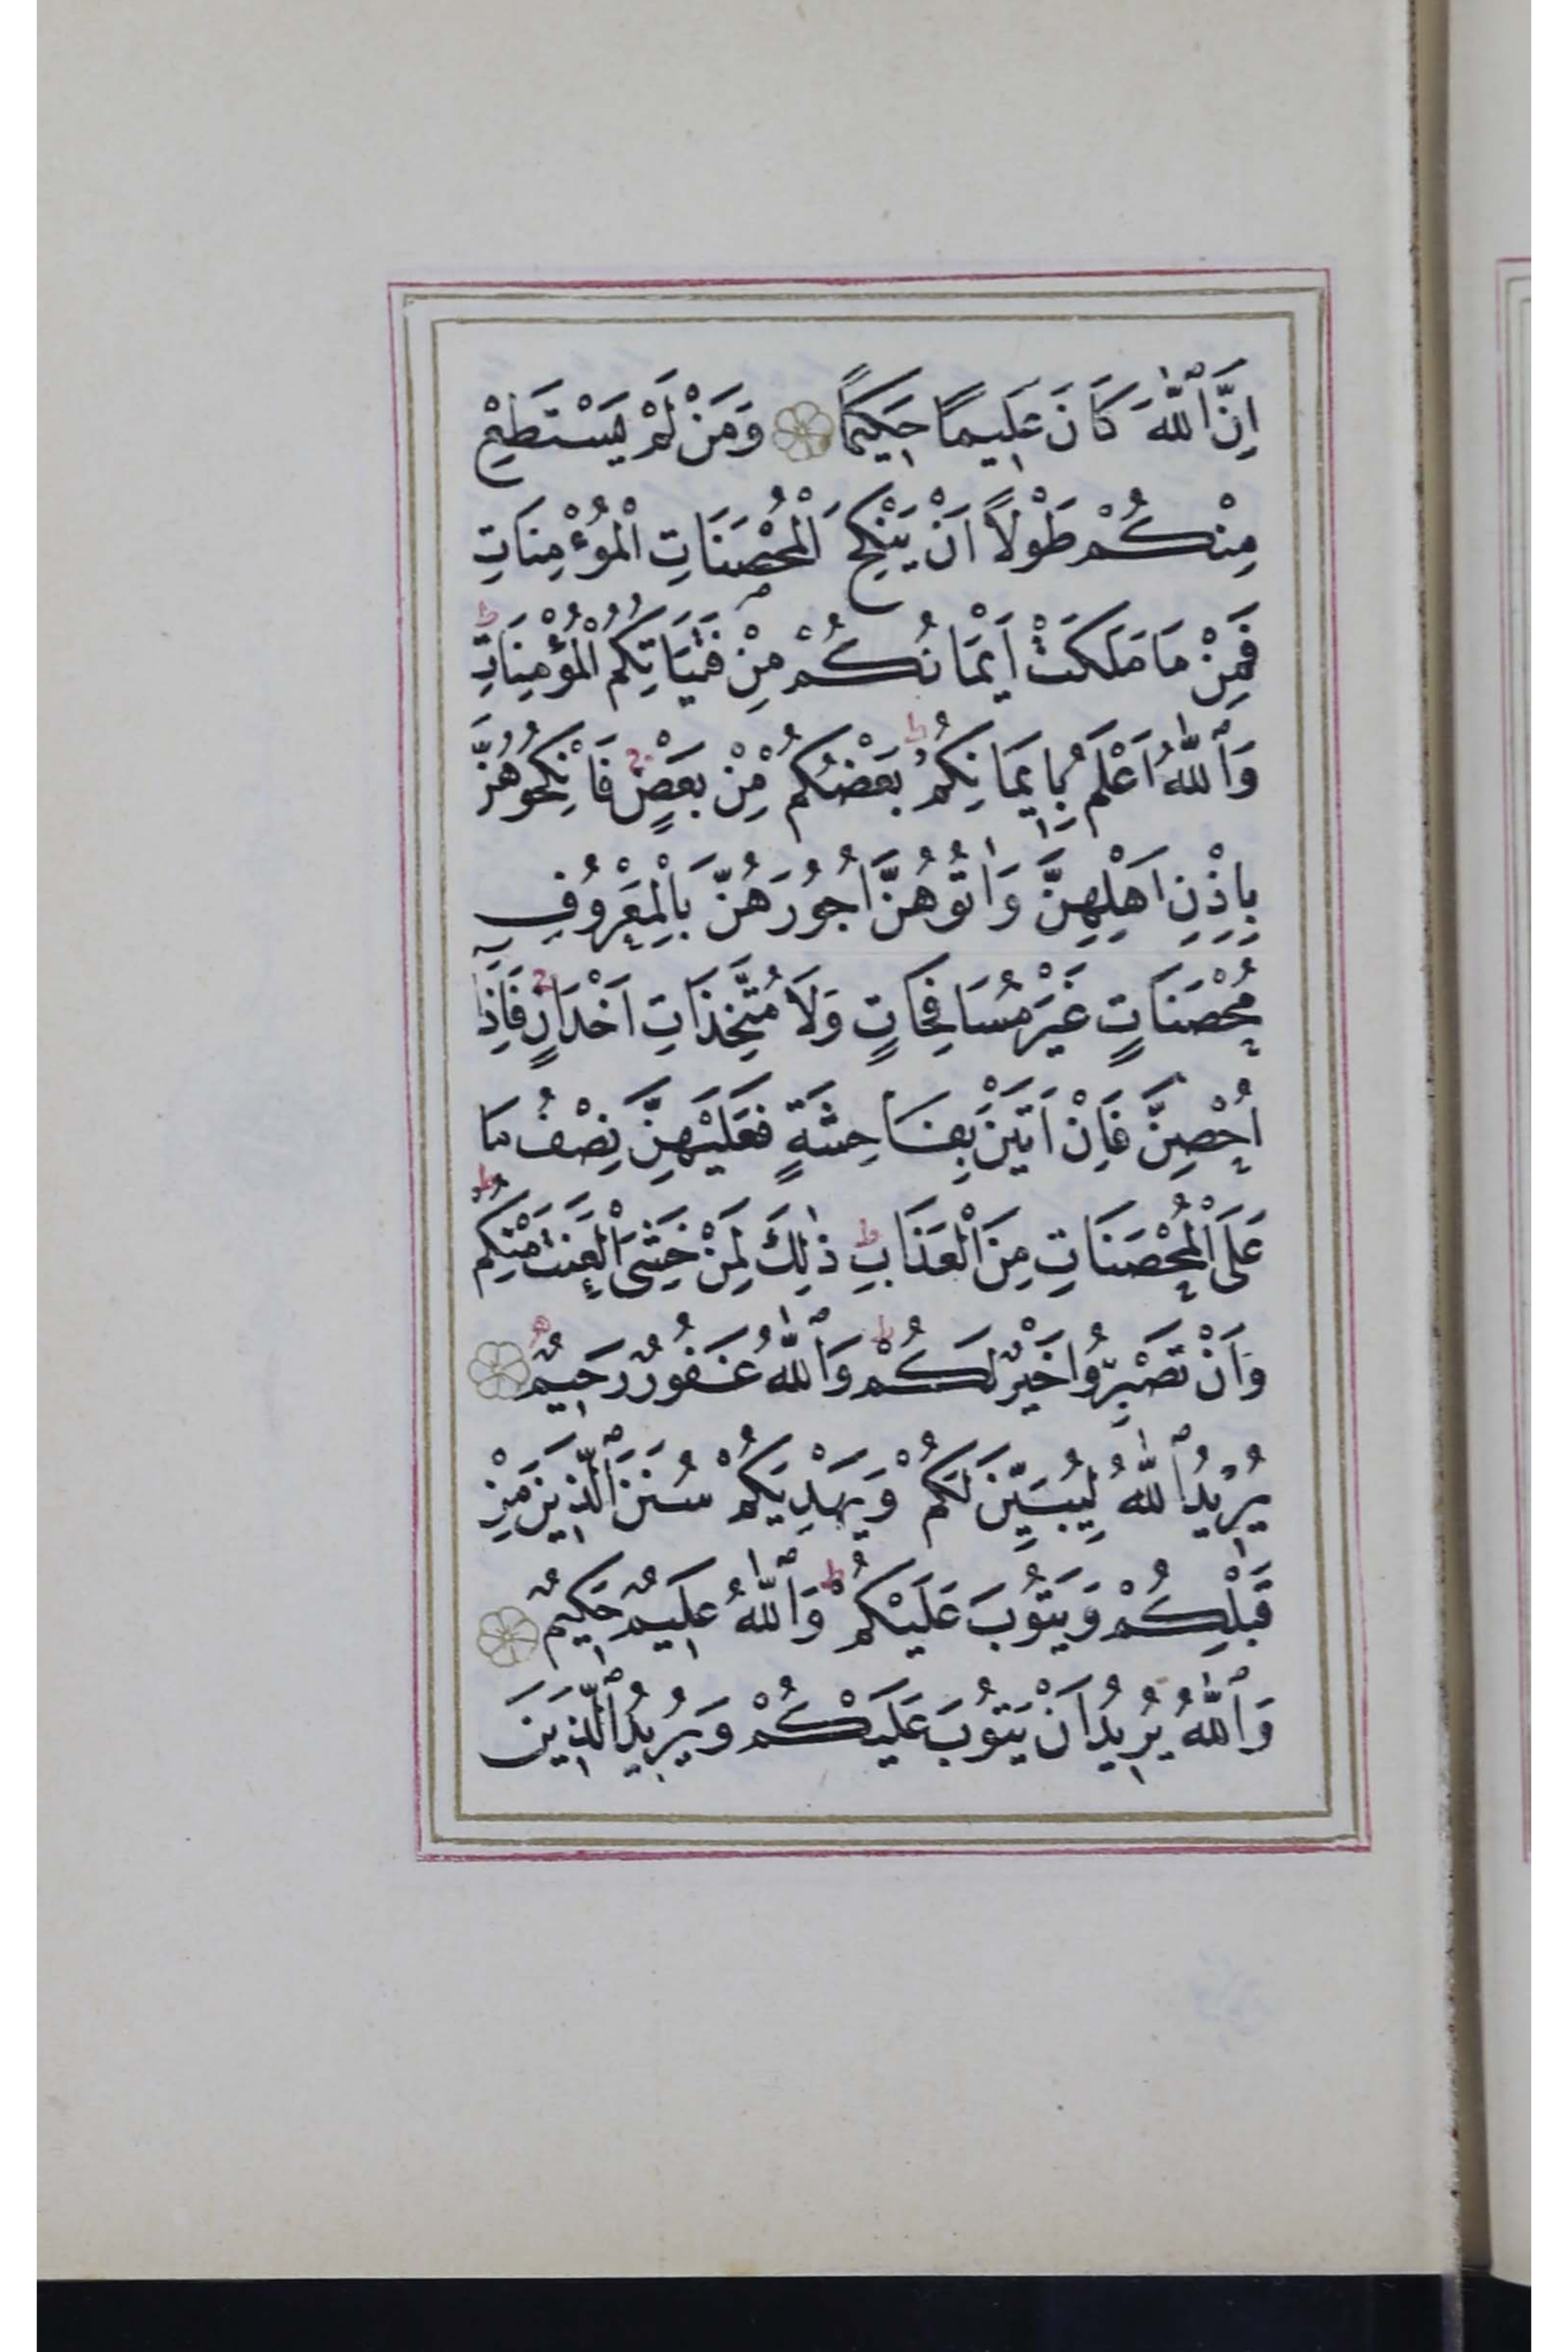 اِنَّ ٱللّٰهَ كَانَ عَلِيمًا حَكِيمًا وَمَنْ لَمْ يَسْتَطِعْ
مِنْكُمْ طَوْلًا اَنْ يَنْكِحَ الْمُحْصَنَاتِ الْمُؤْمِنَاتِ
فَمِنْ مَا مَلَكَتْ اَيْمَانُكُمْ مِنْ فَتَيَاتِكُمُ الْمُؤْمِنَاتِ ط
وَٱللّٰهُ اَعْلَمُ بِاِيمَانِكُمْ ط بَعْضُكُمْ مِنْ بَعْضٍ ج فَانْكِحُوهُنَّ
بِاِذْنِ اَهْلِهِنَّ وَاٰتُوهُنَّ اُجُورَهُنَّ بِالْمَعْرُوفِ
مُحْصَنَاتٍ غَيْرَ مُسَافِحَاتٍ وَلَا مُتَّخِذَاتِ اَخْدَانٍ ج فَاِذَا
اُحْصِنَّ فَاِنْ اَتَيْنَ بِفَاحِشَةٍ فَعَلَيْهِنَّ نِصْفُ مَا
عَلَى الْمُحْصَنَاتِ مِنَ الْعَذَابِ ط ذٰلِكَ لِمَنْ خَشِىَ الْعَنَتَ مِنْكُمْ ط
وَاَنْ تَصْبِرُوا خَيْرٌ لَكُمْ ط وَٱللّٰهُ غَفُورٌ رَحِيمٌ
يُرِيدُ ٱللّٰهُ لِيُبَيِّنَ لَكُمْ وَيَهْدِيَكُمْ سُنَنَ ٱلَّذِينَ مِنْ
قَبْلِكُمْ وَيَتُوبَ عَلَيْكُمْ ط وَٱللّٰهُ عَلِيمٌ حَكِيمٌ
وَٱللّٰهُ يُرِيدُ اَنْ يَتُوبَ عَلَيْكُمْ وَيُرِيدُ ٱلَّذِينَ